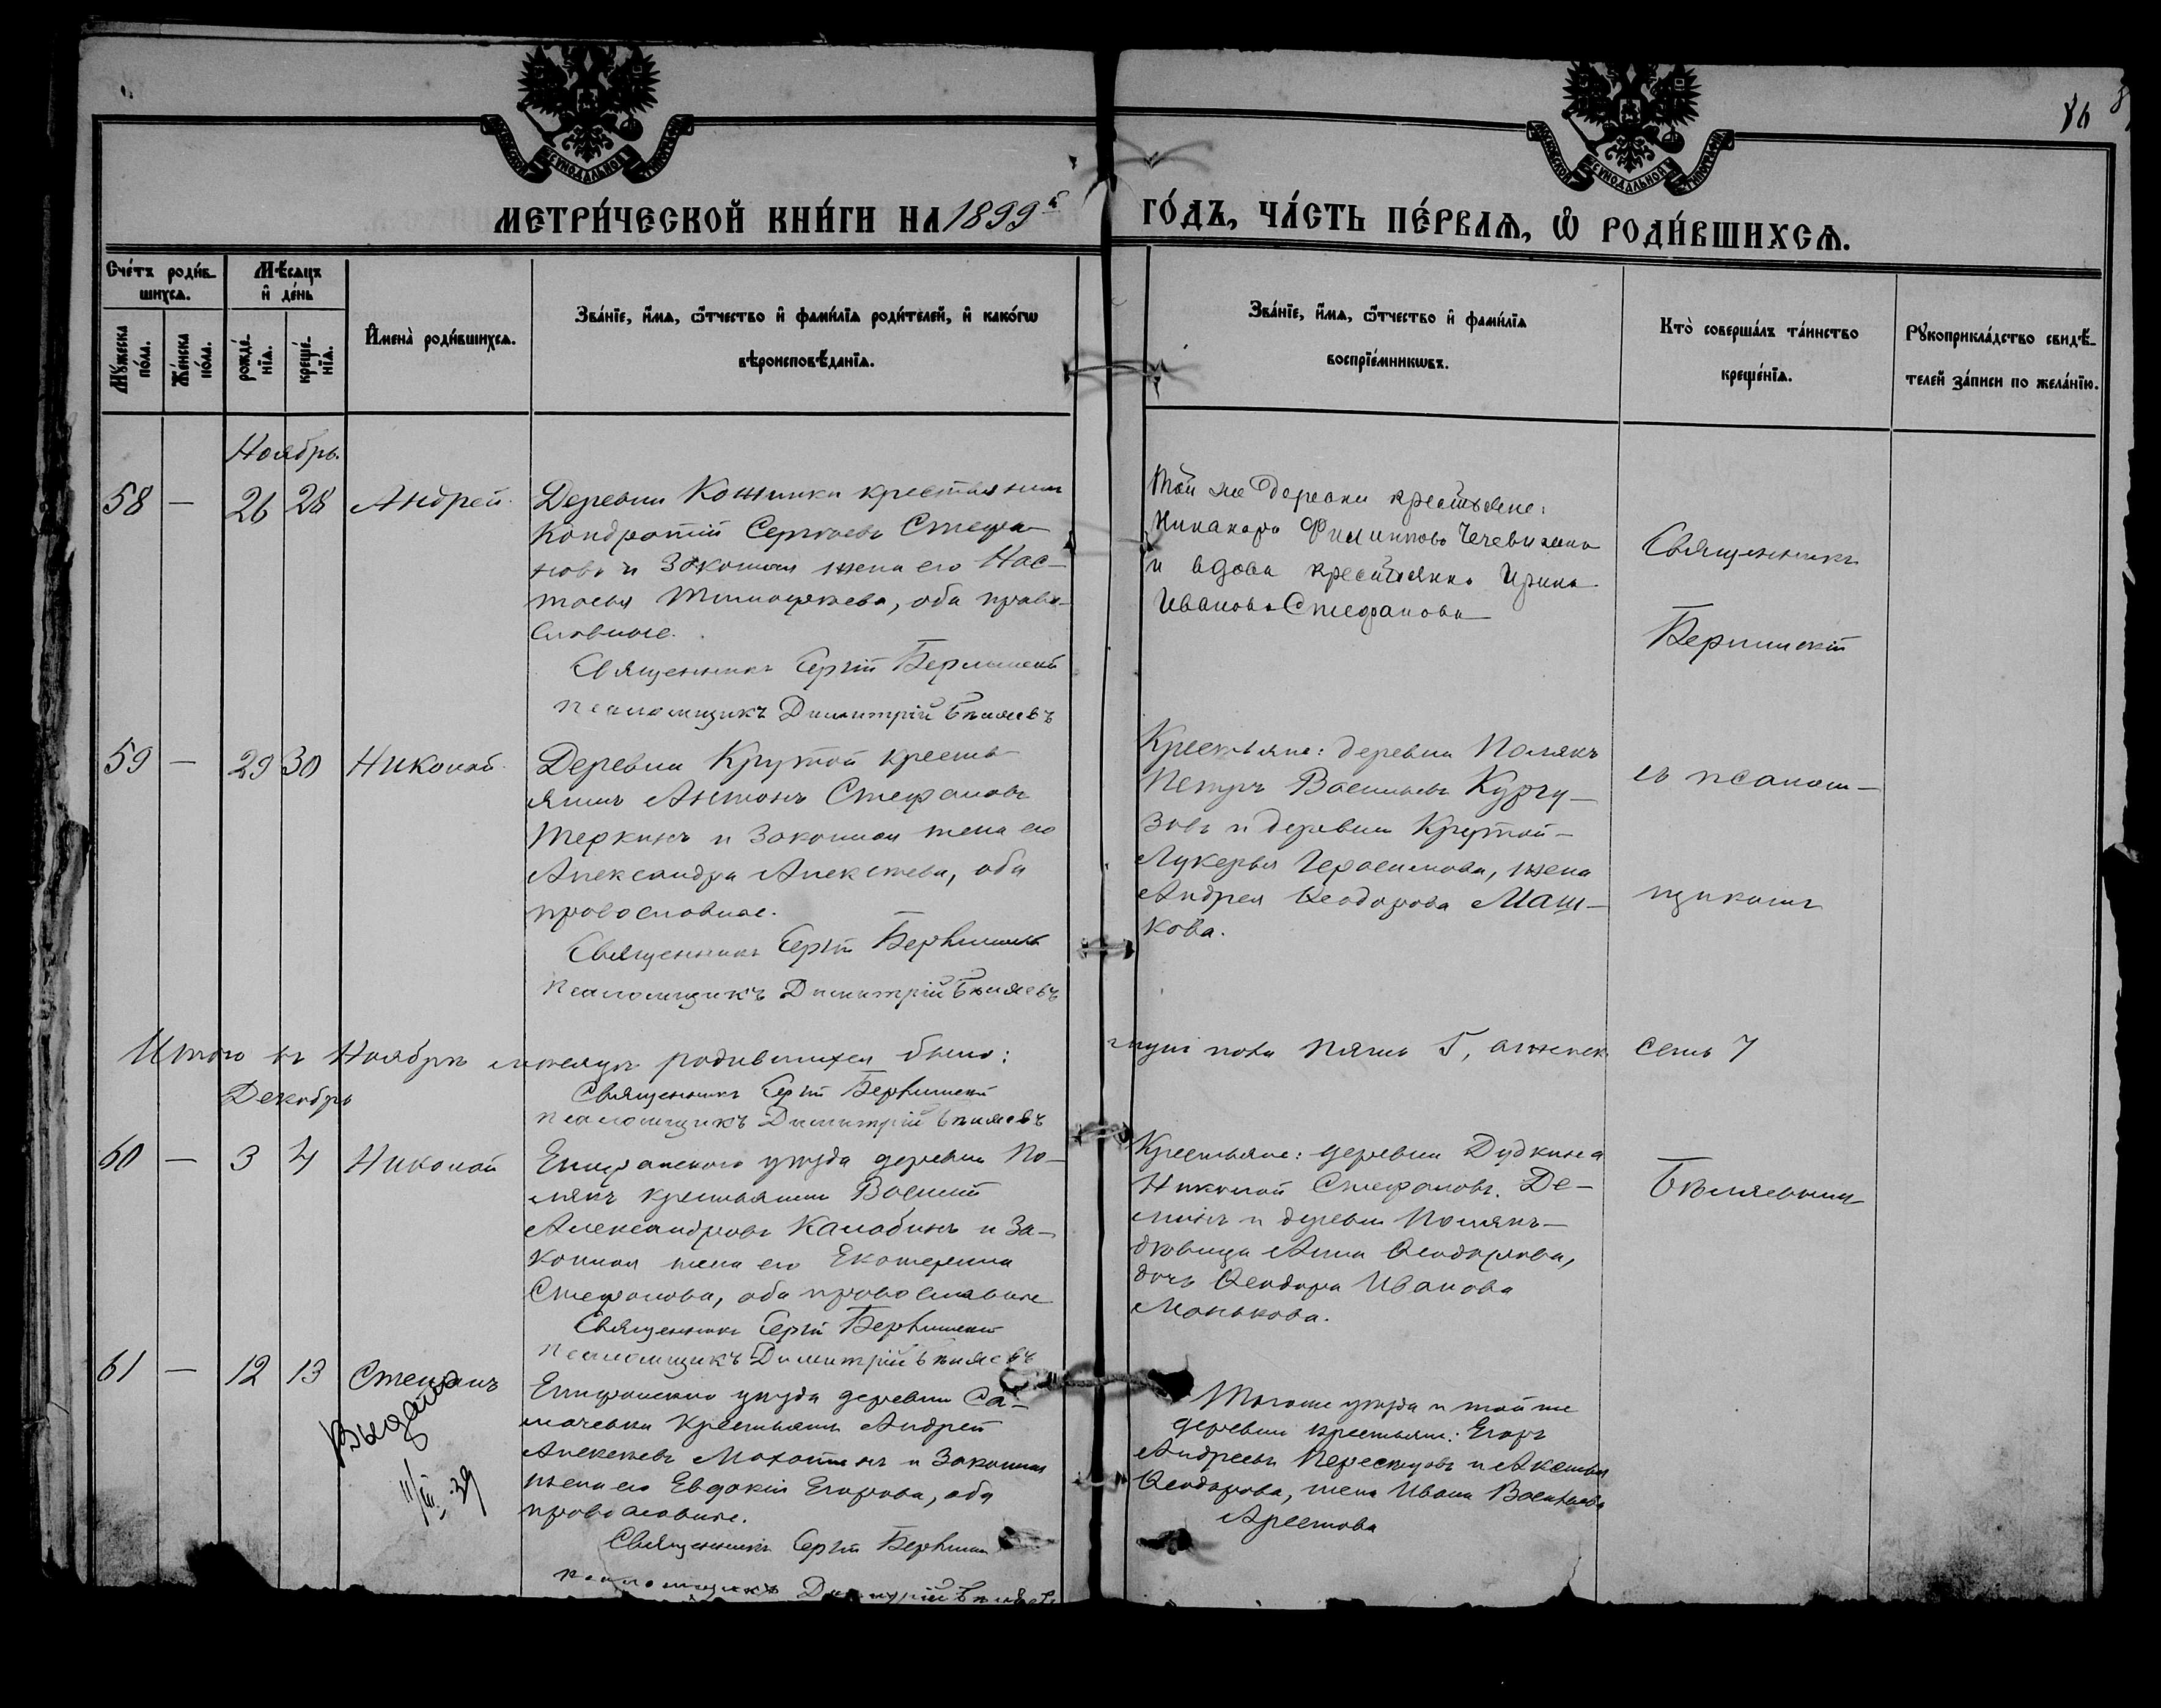 86
МЕТРИ́ЧЕСКОЙ КНИ́ГИ НА 1899й
ГО́ДЪ, ЧА́СТЬ ПЕ́РВАѦ, Ѡ҆ РОДИ́ВШИХСѦ.
Сче́тъ роди́в-
шихсѧ.
Мѣ́сѧцъ
и҆ де́нь
Мꙋ́жеска по́ла.
Же́нска по́ла.
рожде́-
нїѧ.
креще́-
нїѧ.
И҆мена̀ роди́вшихсѧ.
Зва́нїе, и҆́мѧ, ѻ҆́тчество и҆ фами́лїѧ роди́телей, и҆ како́гѡ
вѣроисповѣ́данїѧ.
Зва́нїе, и҆́мѧ, ѻ҆́тчество и҆ фами́лїѧ
воспрїе́мникѡвъ.
Кто̀ соверша́лъ та́инство
креще́нїѧ.
Рꙋкоприкла́дство свидѣ́-
телей за́писи по жела́нїю.
Ноябрь.
58 — 26 28 Андрей.
Деревни крестьянин
Кондратій Сергѣевъ Стефа-
новъ и законная жена его Нас-
тасья Тимофѣева, оба право-
славные.
Священникъ Сергій
Псаломщикъ Димитрій Бѣляевъ
Той же деревни крестьяне:
Никаноръ Филипповъ
и вдова крестьянка Ирина
Иванова Стефанова
Священникъ
59 — 29 30 Николай.
Деревни Крутой кресть-
янинъ Антонъ Стефановъ
Теркинъ и законная жена его
Александра Алексѣева, оба
православные.
Священникъ Сергій
Псаломщикъ Димитрій Бѣляевъ
Крестьяне: деревни Полякъ
Петръ Васильевъ Кургу-
зовъ и деревни Крутой —
Лукерья Герасимова, жена
Андрея Ѳеодорова Маш-
кова.
съ псалом-
щикомъ
Итого въ Ноябрѣ мѣсяцѣ родившихся было:
пола пять 5, а женск. семь 7
Священникъ Сергій
Псаломщикъ Димитрій Бѣляевъ
Декабрь
60 — 3 4 Николай
Епифанскаго уѣзда деревни По-
лякъ крестьянинъ Василій
Александровъ Калабинъ и за-
конная жена его Екатерина
Стефанова, оба православные
Священникъ Сергій
Псаломщикъ Димитрій Бѣляевъ
Крестьяне: деревни Дудкина
Николай Стефановъ Де-
минъ и деревни Полякъ —
дѣвица Анна Ѳеодорова,
дочь Ѳеодора Иванова
Манькова.
Бѣляевымъ
61 — 12 13 Стефанъ
11/III.-39
Епифанскаго уѣзда деревни Са-
мочевки крестьянинъ Андрей
Алексѣевъ и законная
жена его Евдокія Егорова, оба
православные.
Священникъ Сергій
Псаломщикъ Димитрій Бѣляевъ
Того же уѣзда и той же
деревни крестьяне: Егоръ
Андреевъ и Аксинья
Ѳеодорова, жена Ивана Васильева